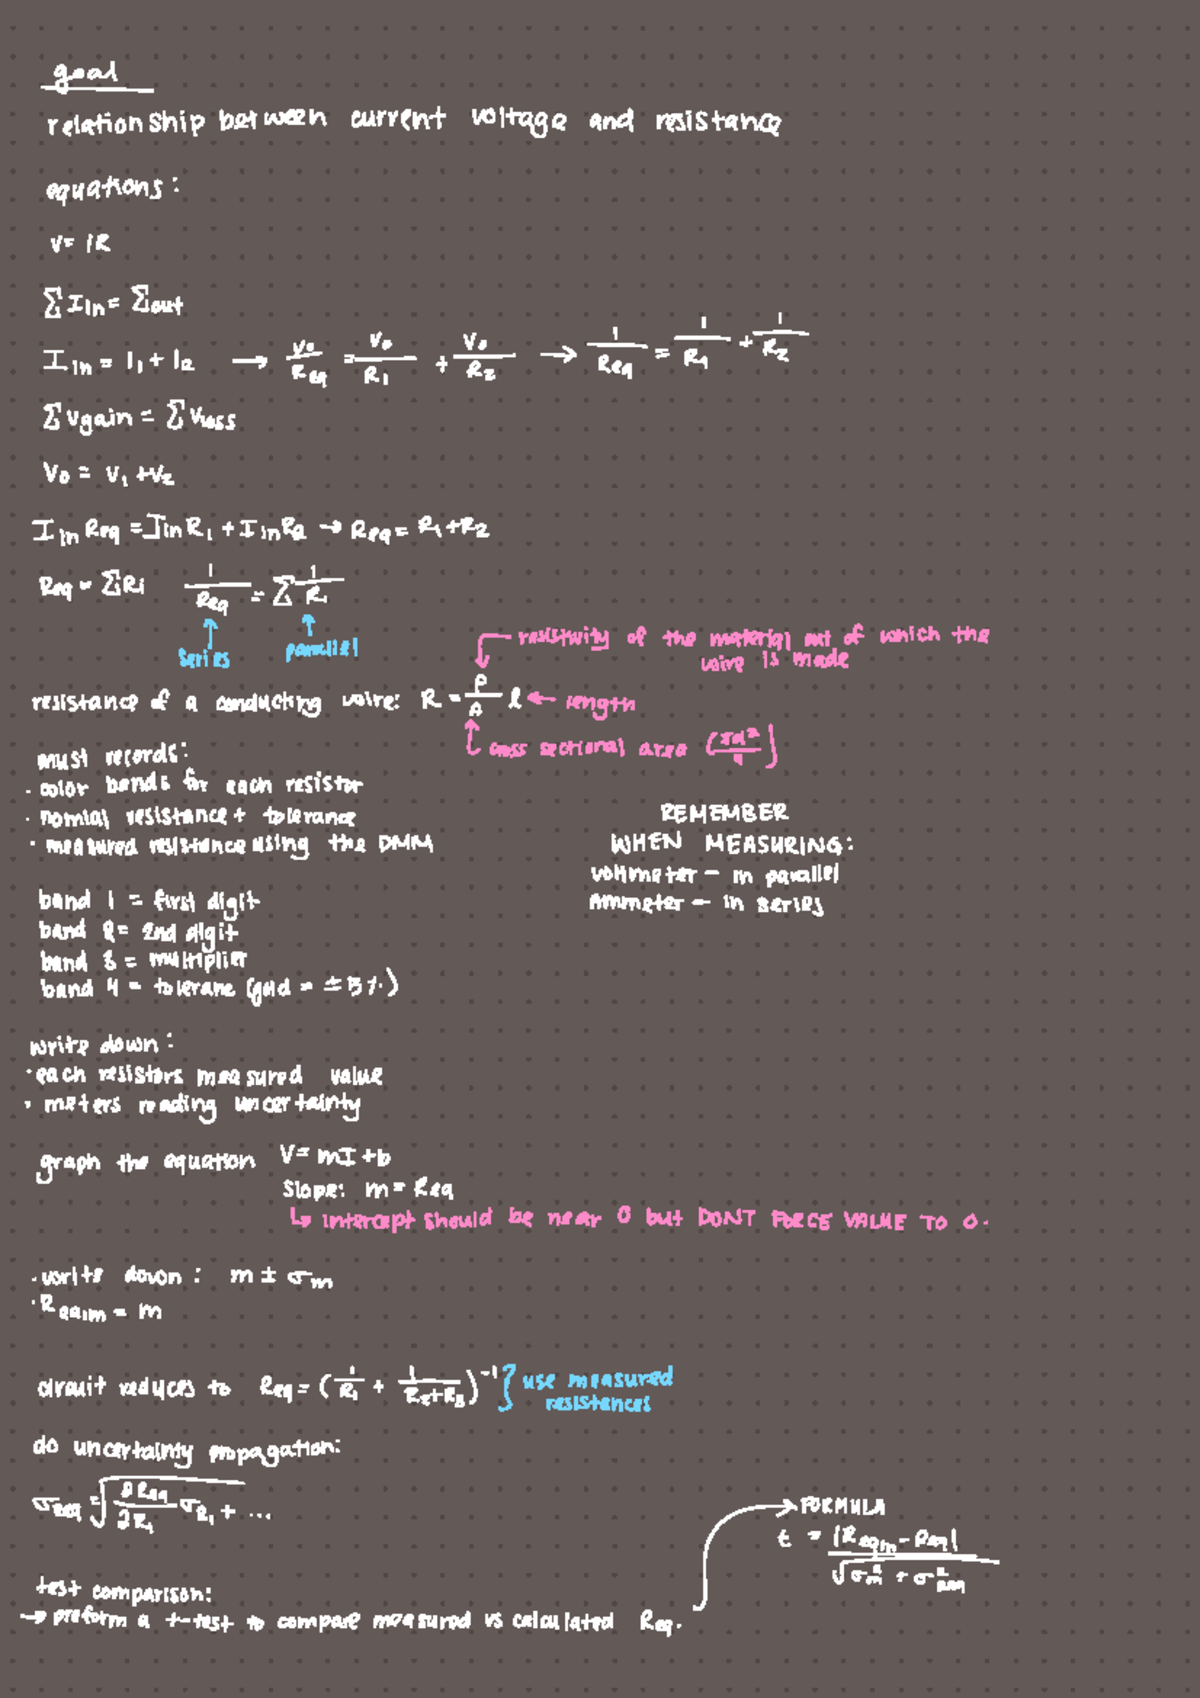 goal
relationship between current voltage and resistance
equations:
V = IR
∑ I in = ∑out
I in = I₁ + I₂ → V₀/Req = V₀/R₁ + V₀/R₂ → 1/Req = 1/R₁ + 1/R₂
∑ Vgain = ∑ Vloss
V₀ = V₁ + V₂
I in Req = I in R₁ + I in R₂ → Req = R₁ + R₂
Req = ∑Ri 1/Req = ∑ 1/Ri
↑ series ↑ parallel
resistivity of the material out of which the
wire is made
resistance of a conducting wire: R = ρ/A l ← length
cross sectional area (πd²/4)
must records:
· color bands for each resistor
· nomial resistance + tolerance
· measured resistance using the DMM
REMEMBER
WHEN MEASURING:
voltmeter – in parallel
Ammeter – in series
band 1 = first digit
band 2 = 2nd digit
band 3 = multiplier
band 4 = tolerane (gold = ±5%)
write down:
· each resistors measured value
· meters reading uncertainty
graph the equation V = mI + b
Slope: m = Req
↳ intercept should be near 0 but DONT FORCE VALUE TO 0.
· write down: m ± σm
· Req,m = m
circuit reduces to Req = (1/R₁ + 1/R₂+R₃)⁻¹ } use measured
resistances
do uncertainty propagation:
σReq = √∂Req/∂R₁ σR₁ + ...
→ FORMULA
t = |Reqm - Req| / √σ²m + σ²Req
test comparison:
→ preform a t-test to compare measured vs calculated Req.